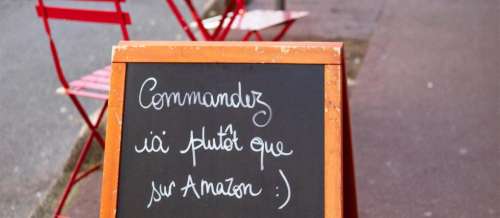 Commandez
ici plutôt que
sur Amazon :)